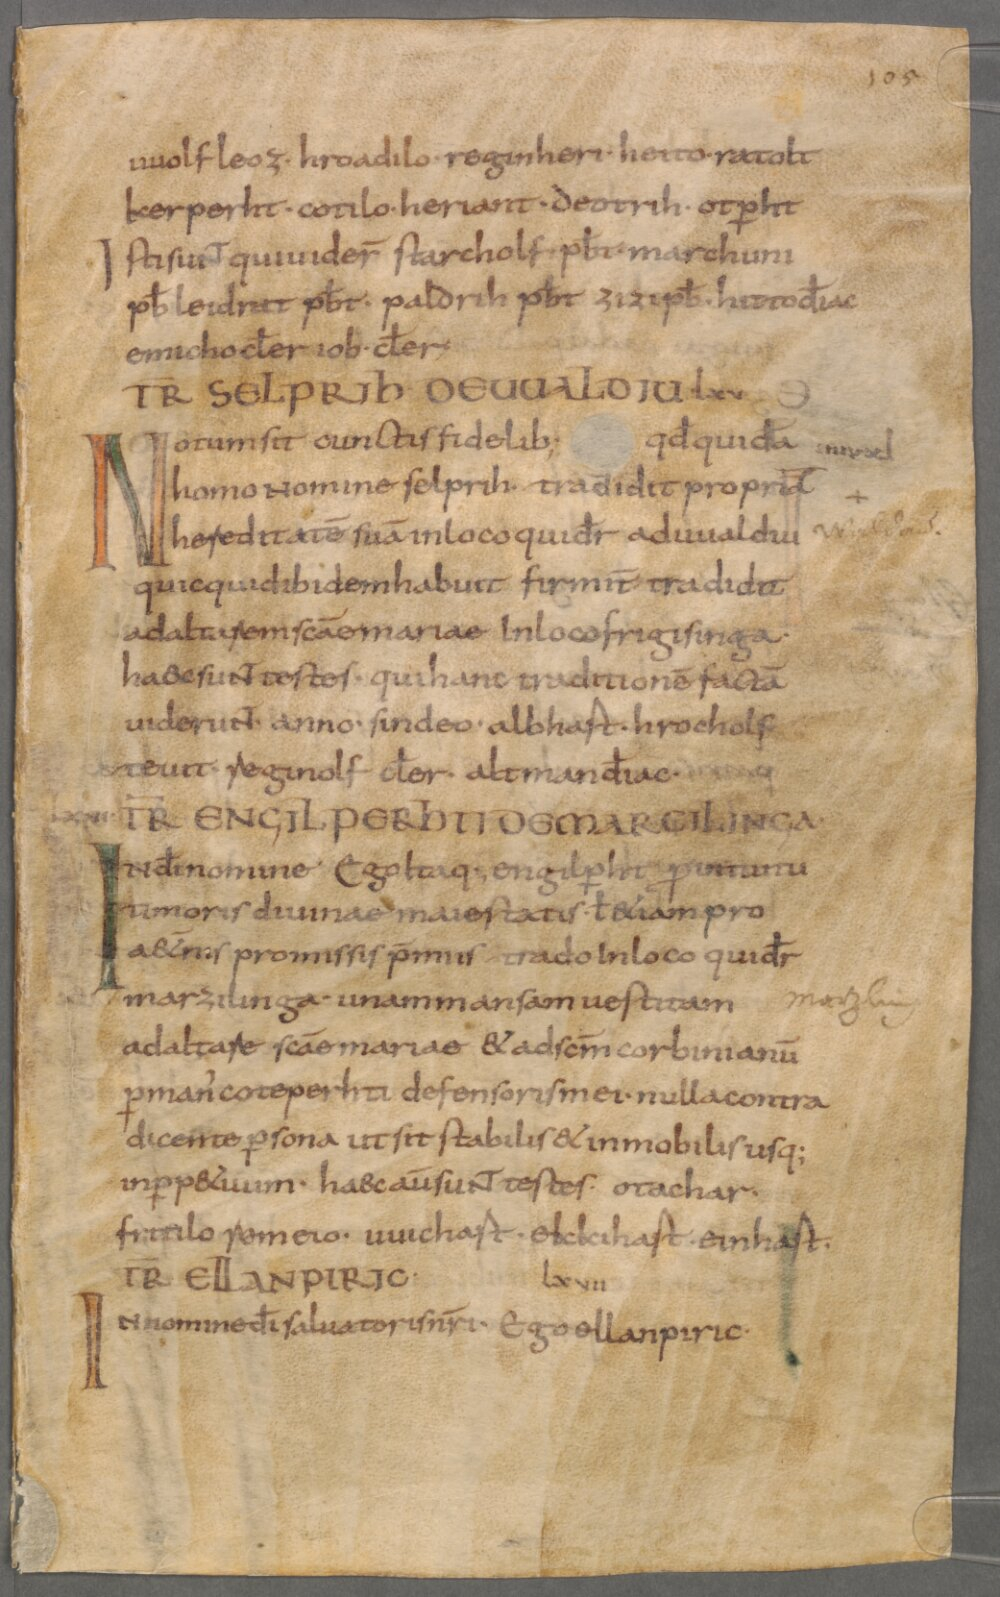 105
uuolfleoz· hroadilo· reginheri· heito· ratolt
kerperht· cotilo· heriant· deotrih· otp̲ht
Istisunt quiuider̄ starcholf· pb̄t· marchuni
pb̄ leidrat pb̄t· paldrih pb̄t zizi pb̄· hitto d̄iac
emicho cl̄er iob· cl̄er·
TR̄ SELPRIH DE UUALDIU lxv
Notumsit cunctis fidelib; qd̄ quidā
homo nomine selprih· tradidit propriā
hereditatē suā inloco quidr̄ aduualdiu
quicquidibidemhabuit firmit̄ tradidit
adaltarem scāe mariae Inloco frigisinga·
haec sunt testes· quihanc traditionē factā
uiderunt· anno· sindeo· albhast· hrocholf
teuit· reginolf cl̄er· altman d̄iac·
TR̄ ENGILPERHTI DE MARCILINGA·
Ind̄inomine Egoltaq; engilp̲ht p̲intuitu
timoris diuinae maiestatis· t̄ &iam pro
a&n̄is promissis p̄miis trado Inloco quidr̄
marzilinga· unam mansam uestitam
marzling
adaltare scāe mariae & adscm̄ corbinianū
p̲man̄ coteperhti defensoris mei· nulla contra
dicente p̲sona ut sit stabilis & inmobilis usq;
inp̲p&uum· haec aūt sunt testes· otachar·
frittilo remeio· uuichast· ekkihast· einhast·
TR̄ ELLANPIRIC· lxvii
Innomine d̄i saluatoris nr̄i· Ego ellanpiric·